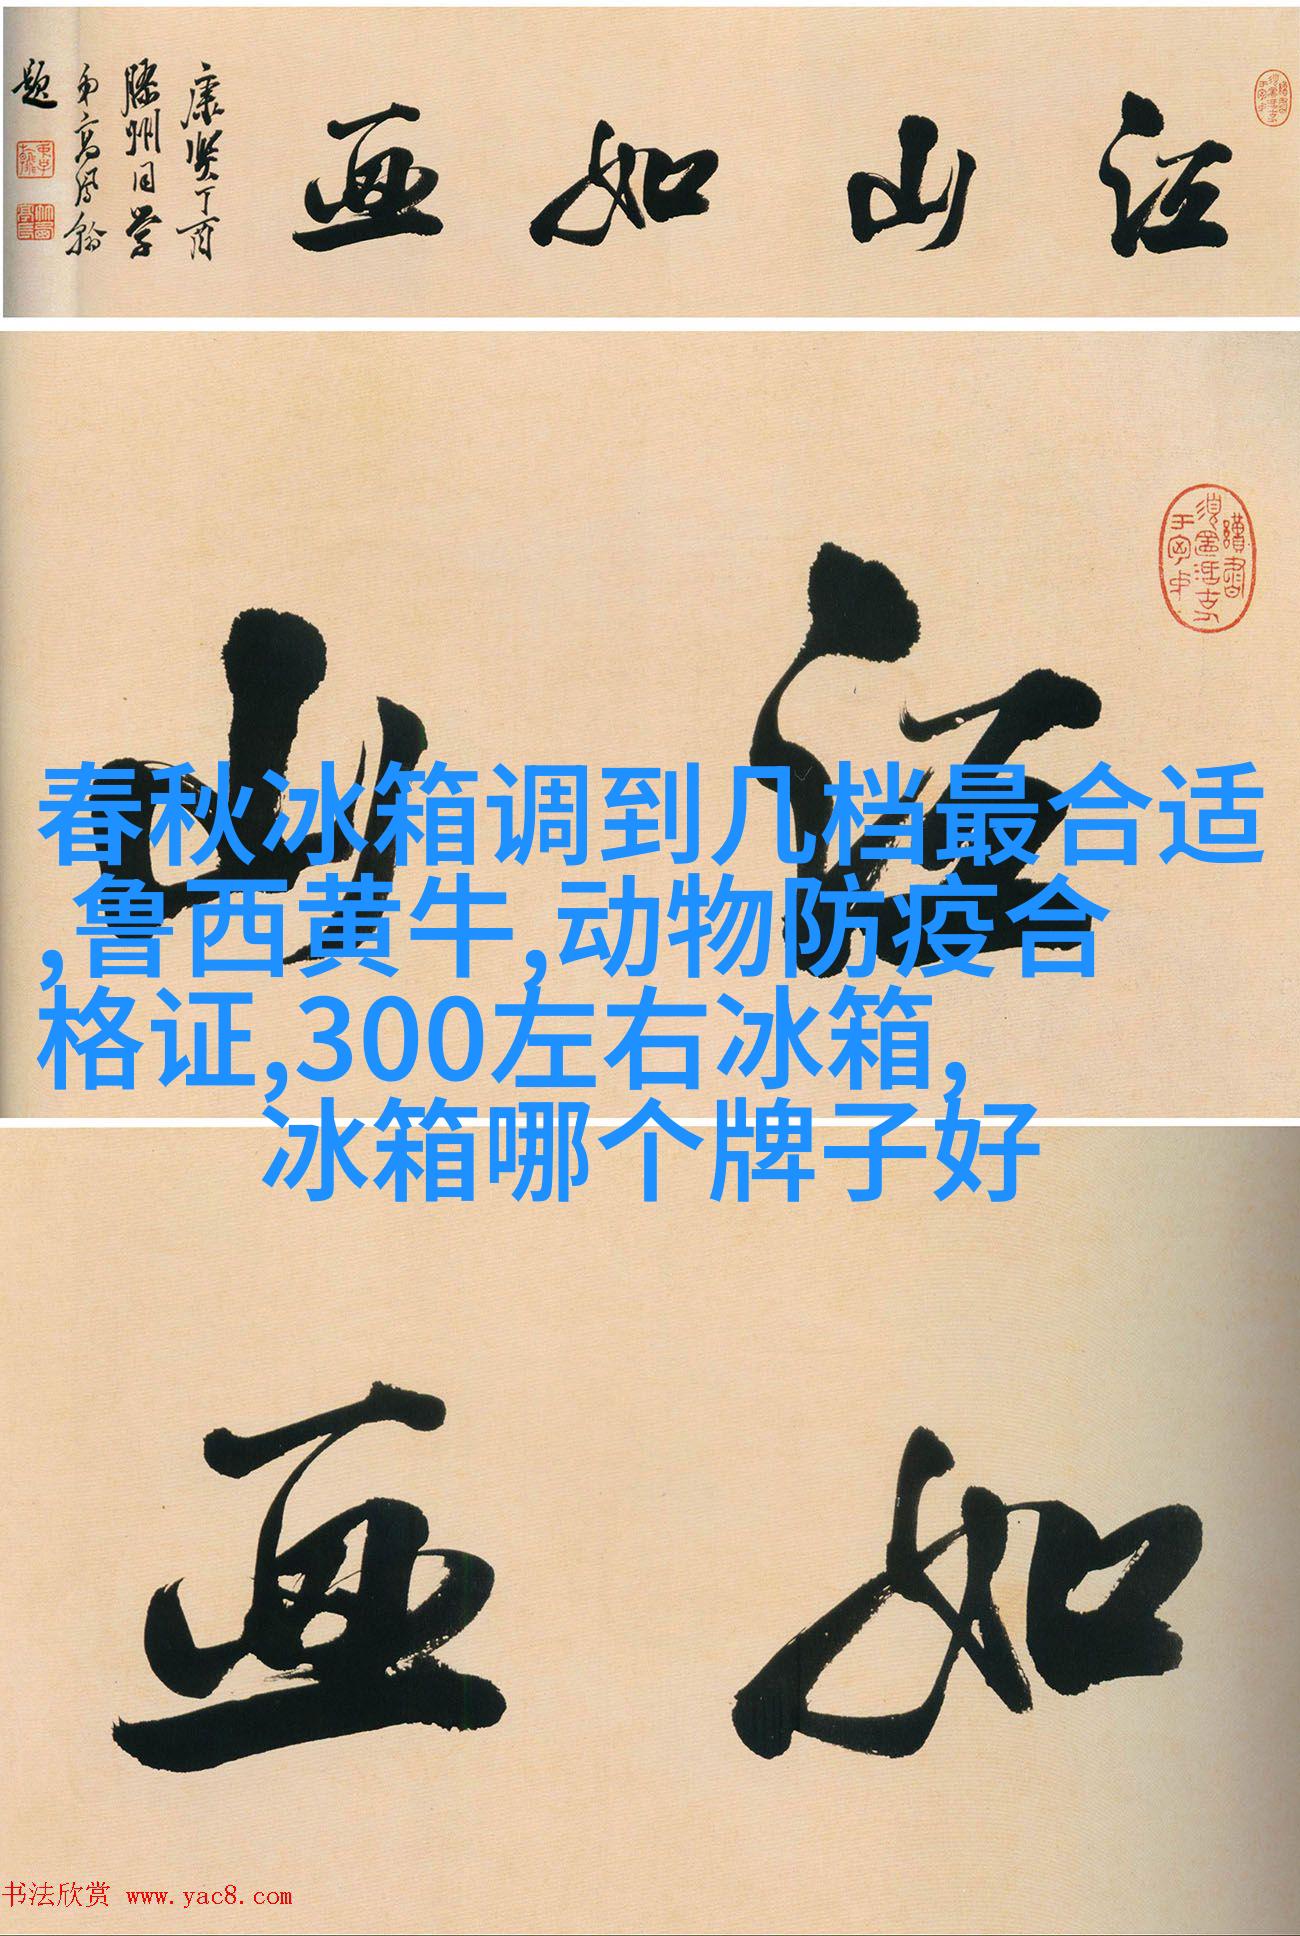 江山如画
康贤丁酉
滕州同学
弟高凤翰
题
江山
春秋冰箱调到几档最合适
,鲁西黄牛,动物防疫合
格证,300左右冰箱,
冰箱哪个牌子好
如画
书法欣赏 www.yac8.com